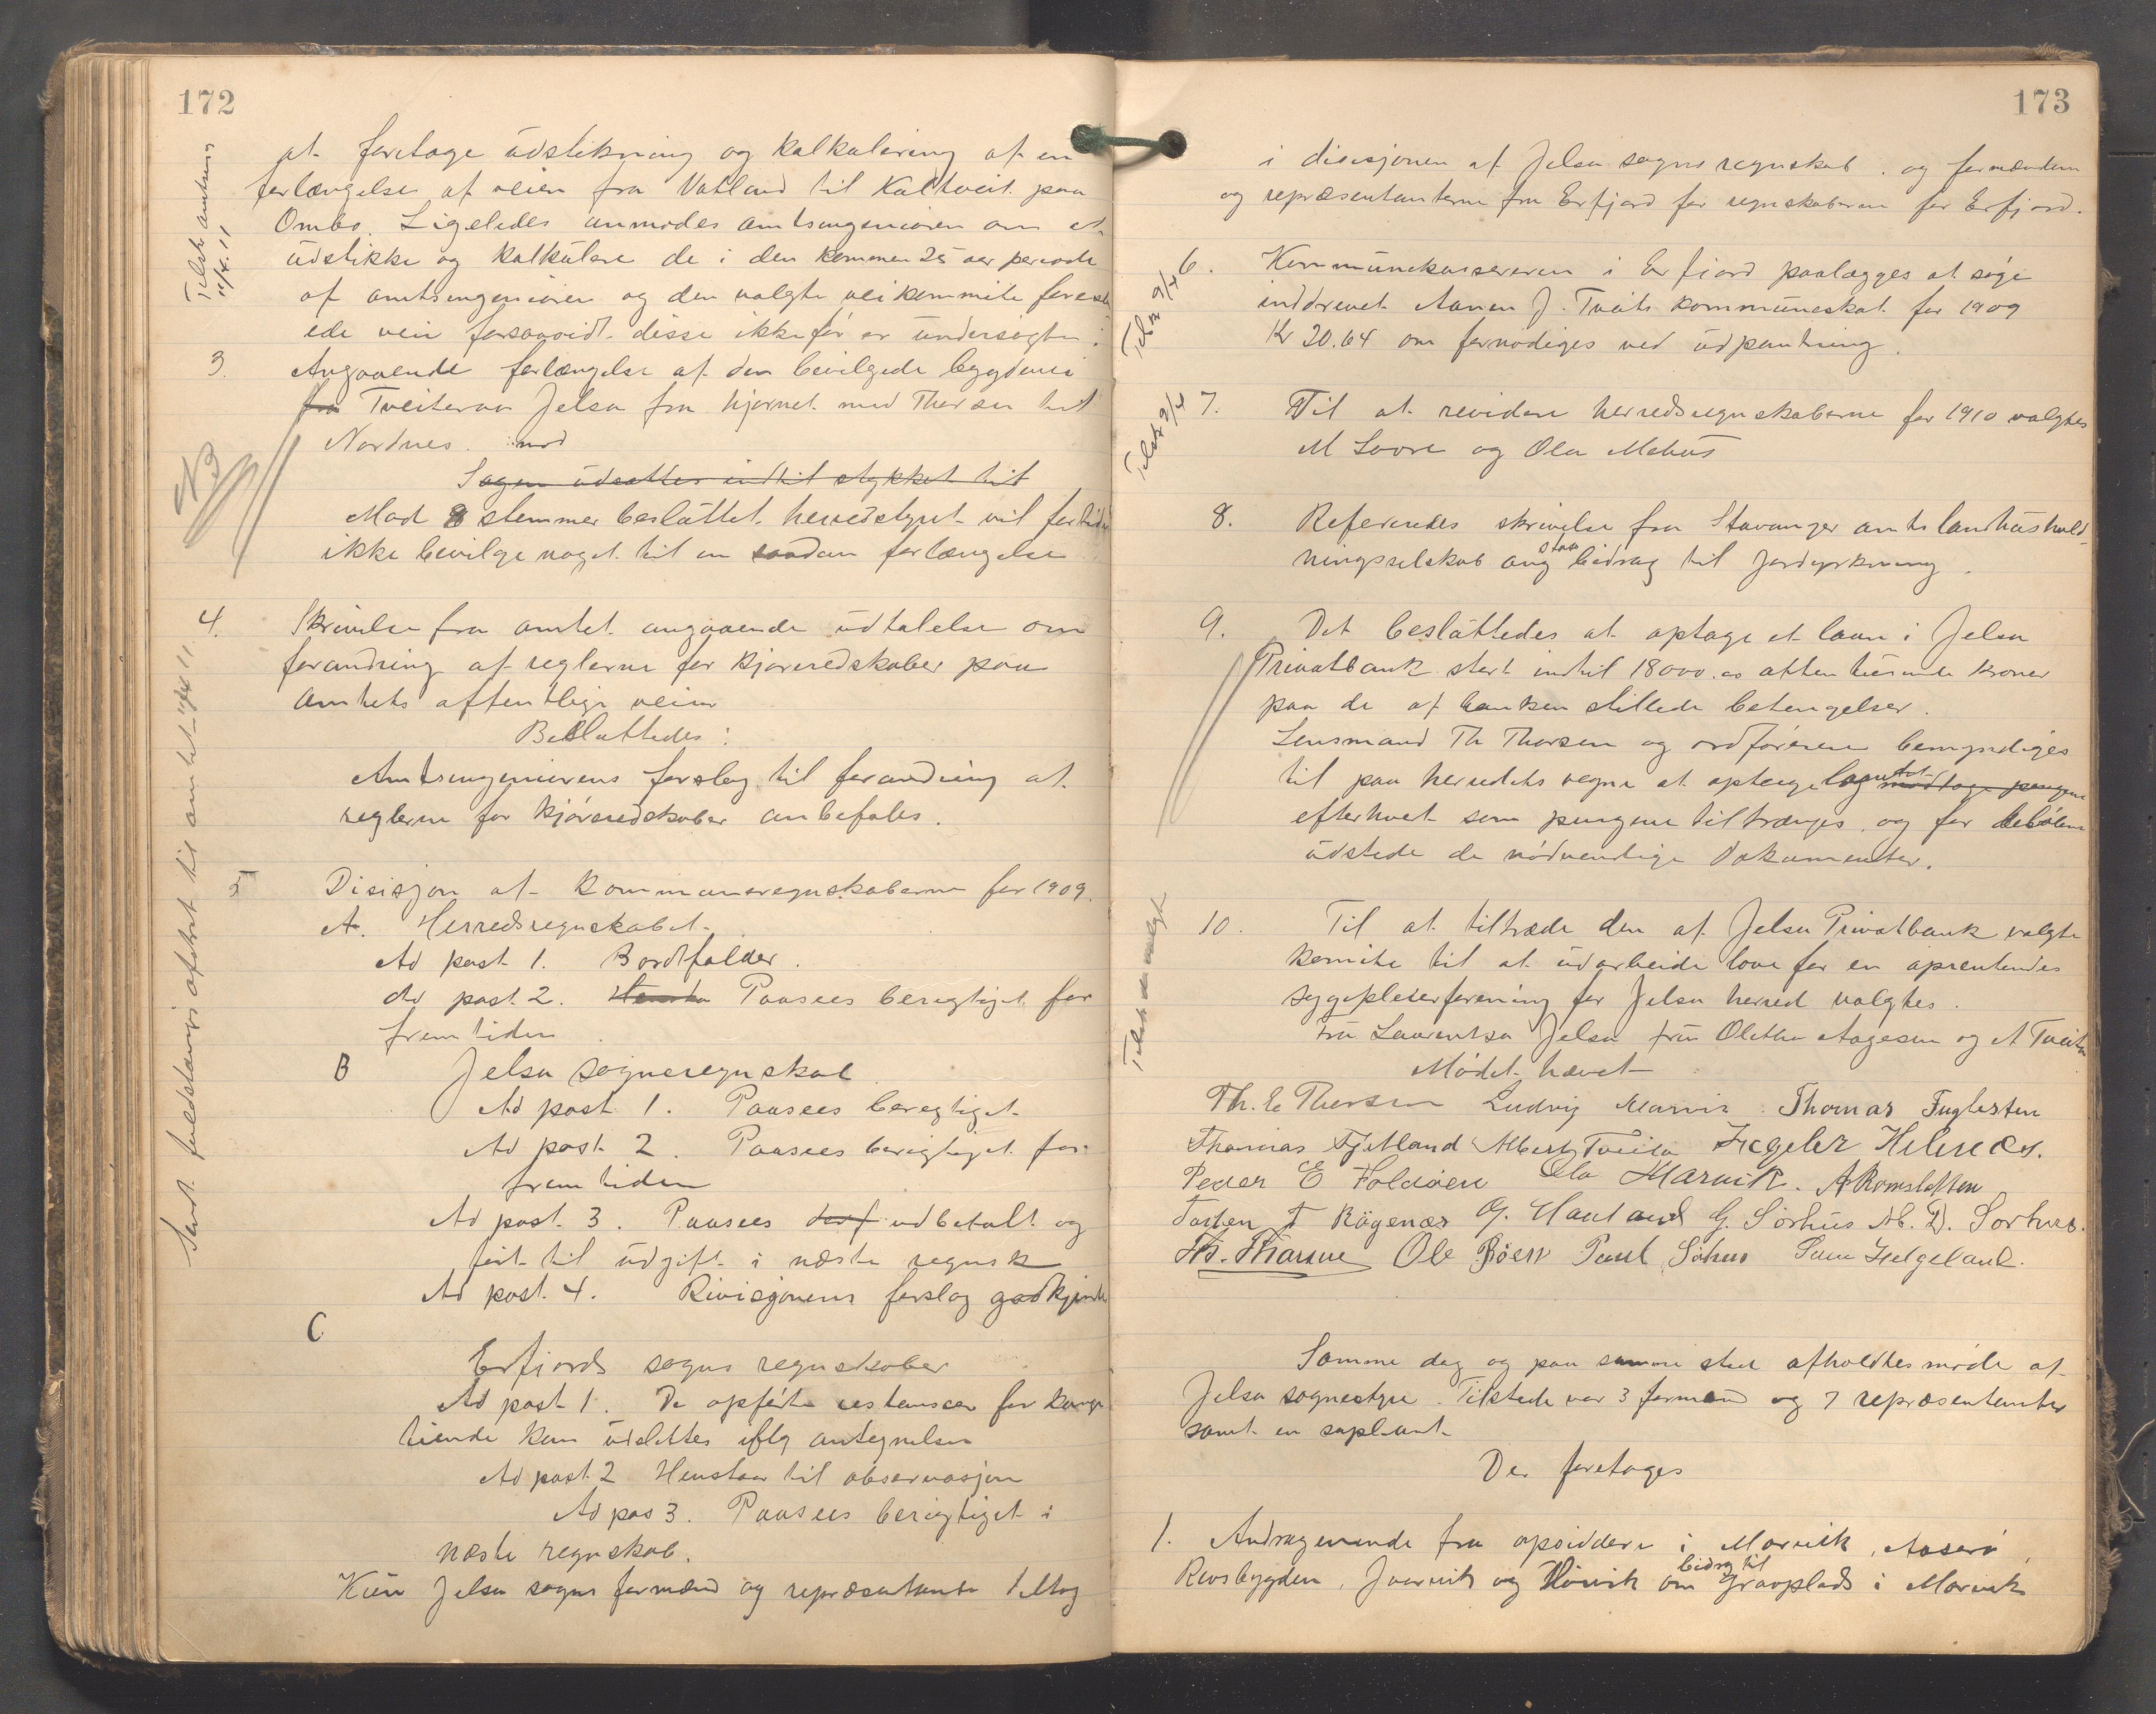 172
at foretage udstikning og kalkulering af en
forlængelse af veien fra Vatland til Kaltveit paa
Ombo. Ligeledes anmodes amtsingeniøren om at
udstikke og kalkulere de i den kommen 25 aar periode
af amtsingeniøren og den valgte veikommite foresl
ede veie forsaavidt disse ikke før er undersøgte.
Tilstr amtning
11/4.11
3. Angaaende forlængelse af den bevilgede bygdevei
fra Tveiteraa Jelsa fra hjørnet med Thorsen till
Nordnes. mod
Sagen udsættes indtil stykket til
Mod 8 stemmer besluttet herredstyret vil for tiden
ikke bevilge noget til en saadan forlængelse
NB
4. Skrivelse fra amtet angaaende udtalelse om
forandring af reglerne for kjøreredskaber paa
Amtets offentlige veier
Besluttedes:
Amtsingeniørens forslag til forandring af
reglerne for kjøreredskaber anbefales.
Sendt fuldstændig afskrift til amtet 11/4 11
5 Disisjon af Kommuneregnskaberne for 1909.
A. Herredsregnskabet.
Ad post 1. Bortfalder.
Ad post 2. Paasees berigtiget for
fremtiden
B Jelsa sogneregnskab
Ad post 1. Paasees berigtiget
Ad post 2. Paasees berigtiget for
fremtiden
Ad post 3. Paasees udbetalt og
ført til udgift i næste regnsk
Ad post 4. Rivisjonens forslag godkjendes
C
Erfjords sogns regnskaber
Ad post 1. De opførte restancer for konge
tiende kan udslettes iflg antegnelsen
Ad post 2 Henstaar til observasjon
Ad pos 3. Paasees berigtiget i
næste regnskab.
Kun Jelsa sogns formænd og repræsentanter deltog
173
i disisjonen af Jelsa sogns regnskab. og formændene
og repræsentanterne fra Erfjord for regnskaberne for Erfjord.
6. Kommunekassereren i Erfjord paalægges at søge
inddrevet Aanen J. Tveits kommuneskat for 1909
Kr 20.64 om fornødiges ved udpantning.
Tilstr 9/4
7. Til at revidere herredsregnskaberne for 1910 valgtes
M Lovre og Ola Mehus
Tilstr 9/4
8. Refereredes skrivelse fra Stavanger amts landhushold
ningsselskab ang stats bidrag til Jordyrkning.
9. Det besluttedes at optage et laan i Jelsa
Privatbank stort indtil 18000.00 atten tusinde kroner
paa de af banken stillede betingelser.
Lensmand Th Thorsen og ordføreren bemyndiges
til paa herredets vegne at optage laanet og modtage pengene
efterhvert som pengene tiltrænges, og for beløbene
udstede de nødvendige Dokumenter.
10. Til at tiltræde den af Jelsa Privatbank valgte
komite til at udarbeide love for en oprentendes
sygepleierforening for Jelsa herred valgtes.
Fru Laurentsa Jelsa fru Olethe Aagesen og A Tveita
Tilstr de valgte
Mødet hævet
Th. E Thorsen Ludvig Marvik Thomas Fuglesten
Thomas Fjetland Albert Tveita Ingebr Helnes.
Peder E Foldøen Ola Marvik. A Romsletten
Torben T Rögenæs G. Hauland G. Sørhus Ab. D. Sørhus.
Th. Thorsne Ole Bøen Paul Sørhus Paul Helgeland.
Samme dag og paa samme sted afholdtes møde af
Jelsa sognestyre. Tilstede var 3 formænd og 7 repræsentanter
samt en suplant
Der foretages
1. Andragende fra opsiddere i Marvik, Aaserø,
Revsbygden, Joarvik og Høivik om bidrag til Gravplads i Marvik